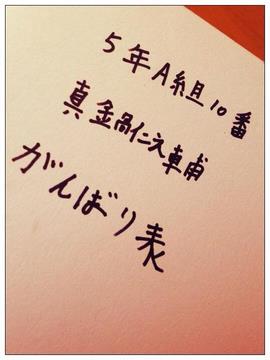 5年A組10番
真鍋仁之輔
がんばり表